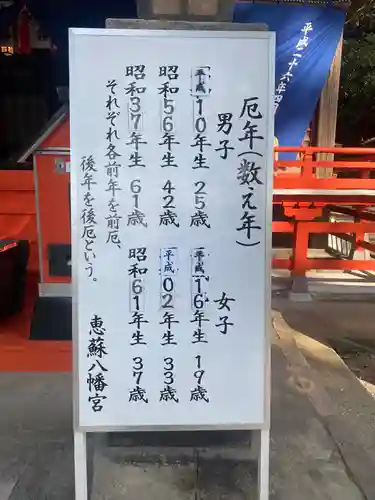 平成二十六年四
厄年(数え年)
男子
平成10年生 25歳
昭和56年生 42歳
昭和37年生 61歳
女子
平成16年生 19歳
平成02年生 33歳
昭和61年生 37歳
それぞれ各前年を前厄、
後年を後厄という。
恵蘇八幡宮